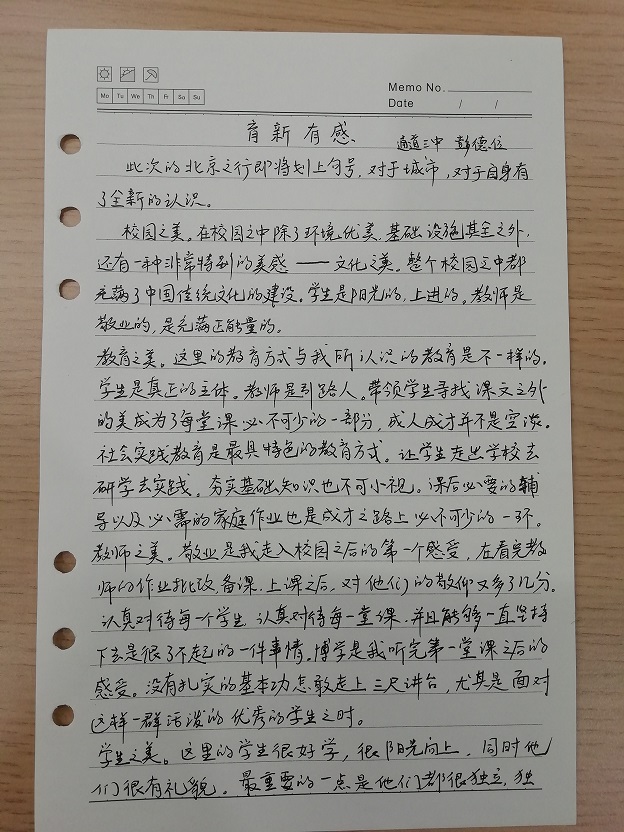 Mo Tu We Th Fr Sa Su
Memo No.
Date / /
育新有感
通道三中 彭德位
此次的北京之行即将划上句号,对于城市,对于自身有
了全新的认识。
校园之美。在校园之中除了环境优美,基础设施其全之外,
还有一种非常特别的美感——文化之美。整个校园之中都
充满了中国传统文化的建设。学生是阳光的,上进的。教师是
敬业的,是充满正能量的。
教育之美。这里的教育方式与我所认识的教育是不一样的。
学生是真正的主体。教师是引路人。带领学生寻找课文之外
的美成为了每堂课必不可少的一部分,成人成才并不是空谈。
社会实践教育是最具特色的教育方式。让学生走出学校去
研学去实践。夯实基础知识也不可小视。课后必要的辅
导以及必需的家庭作业也是成才之路上必不可少的一环。
教师之美。敬业是我走入校园之后的第一个感受,在看完教
师的作业批改,备课,上课之后,对他们的敬仰又多了几分。
认真对待每一个学生,认真对待每一堂课,并且能够一直坚持
下去是很了不起的一件事情。博学是我听完第一堂课之后的
感受。没有扎实的基本功怎敢走上三尺讲台,尤其是面对
这样一群活泼的优秀的学生之时。
学生之美。这里的学生很好学,很阳光向上,同时他
们很有礼貌。最重要的一点是他们都很独立,独